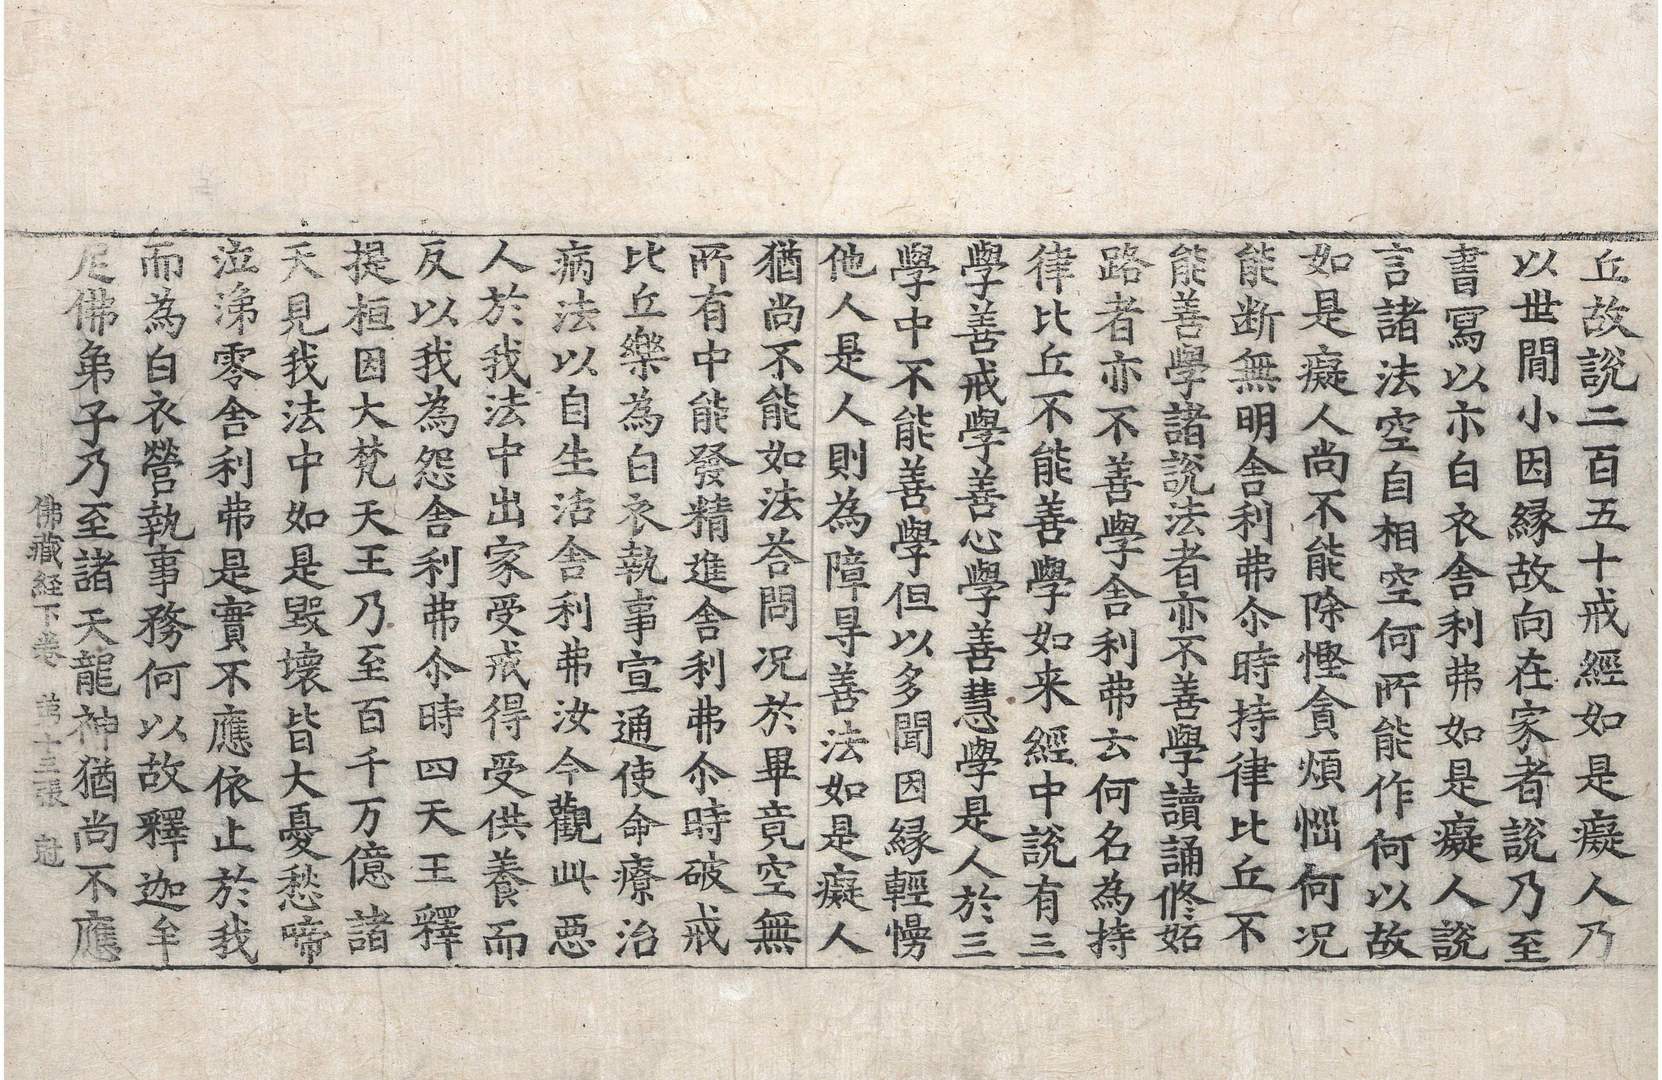 丘故說二百五十戒經如是癡人乃
以世間小因緣故向在家者說乃至
書寫以示白衣舍利弗如是癡人說
言諸法空自相空何所能作何以故
如是癡人尚不能除慳貪煩惱何況
能断無明舍利弗尒時持律比丘不
能善學諸說法者亦不善學讀誦修妬
路者亦不善學舍利弗云何名為持
律比丘不能善學如来經中說有三
學善戒學善心學善慧學是人於三
學中不能善學但以多聞因緣輕慢
他人是人則為障㝵善法如是癡人
猶尚不能如法荅問况於畢竟空無
所有中能發精進舍利弗尒時破戒
比丘樂為白衣執事宣通使命療治
病法以自生活舍利弗汝今觀此惡
人於我法中出家受戒得受供養而
反以我為怨舍利弗尒時四天王釋
提桓因大梵天王乃至百千万億諸
天見我法中如是毀壞皆大憂愁啼
泣涕零舍利弗是實不應依止於我
而為白衣營執事務何以故釋迦牟
尼佛弟子乃至諸天龍神猶尚不應
佛藏経下卷 苐十三張 尅